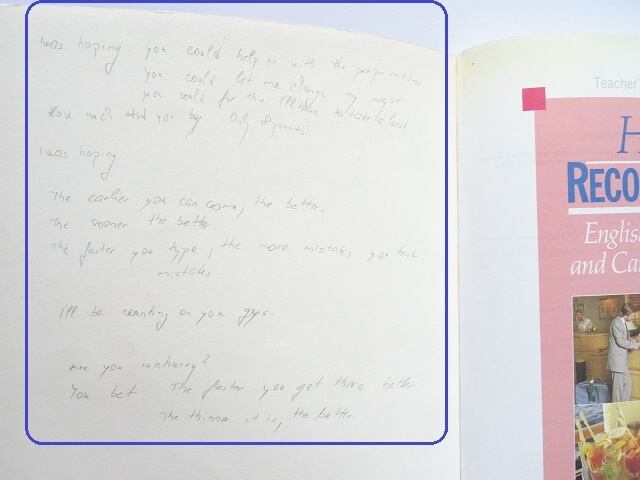 I was hoping you could help us with the preparations
you could let me change my major
you could for this I'll have to take a loan
How much did you buy Only 8 pounds.
I was hoping
The earlier you can come, the better.
The sooner the better
The faster you type, the more mistakes you
mistakes
I'll be counting on you guys.
Are you
You bet The faster you get there better
The thinner it is, the better
Teacher's
H
RECO
English
and Ca